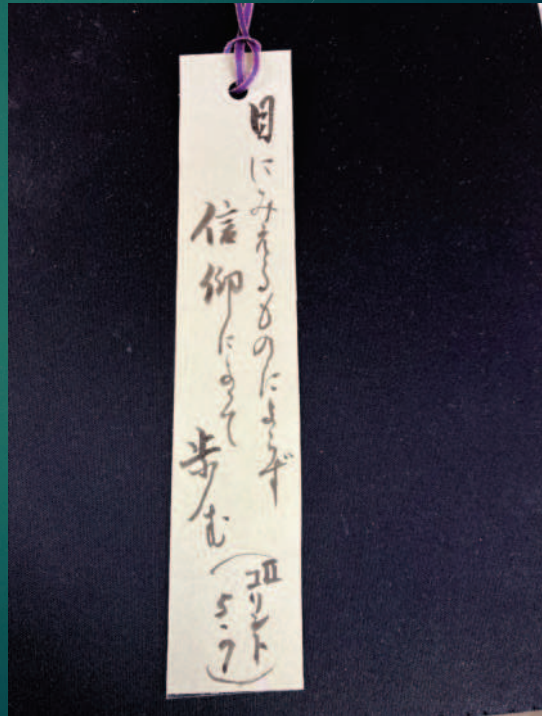 目にみえるものによらず
信仰によって歩む
(Ⅱコリント
5・7)